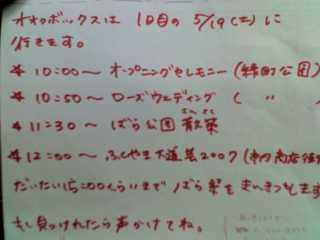 オオカボックスは 1日目の 5/19(土)に
行きます。
* 10:00~ オープニングセレモニー(緑町公園)
* 10:50~ ローズウェディング( 〃 )
* 11:30~ ばら公園 散策
* 12:00~ ふくやま大道芸2007(本町商店街
だいたい15:00くらいまで ばら祭を
もし見つけれたら声かけてね。